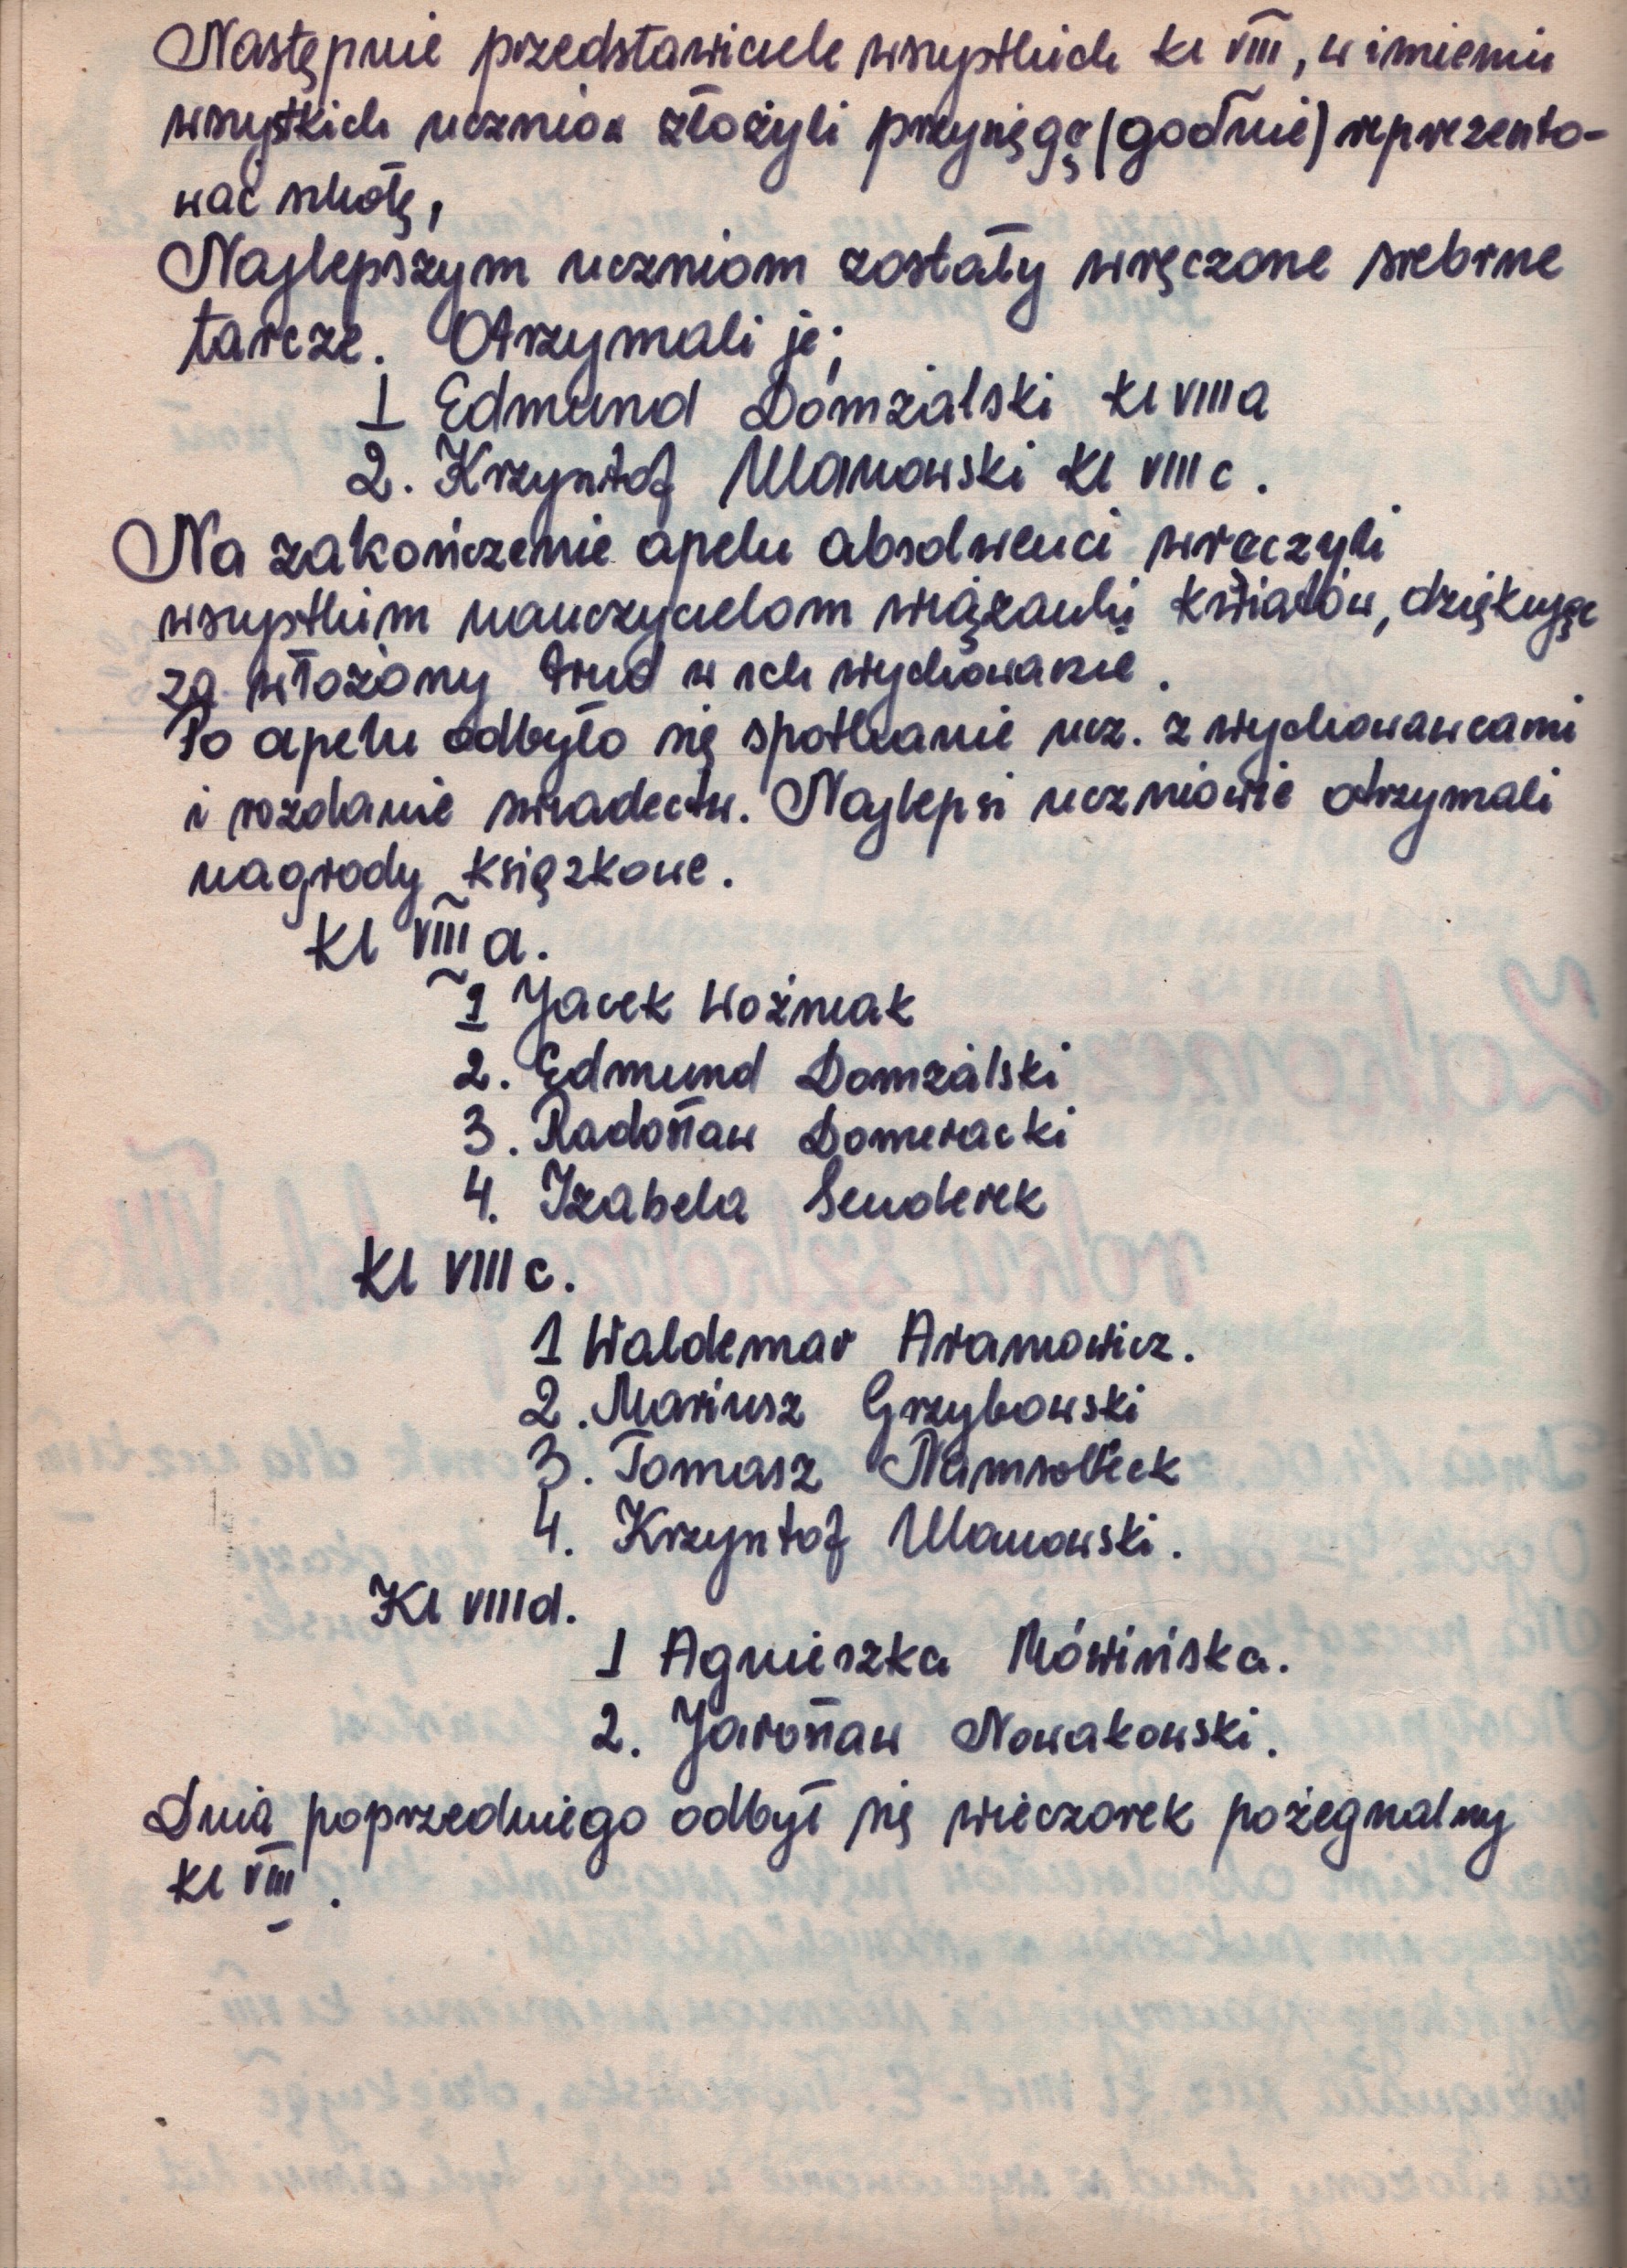 Następnie przedstawiciele wszystkich kl VIII, w imieniu
wszystkich uczniów złożyli przysięgę (godnie) reprezento-
wać szkołę,
Najlepszym uczniom zostały wręczone srebrne
tarcze. Otrzymali je:
1 Edmund Domżalski kl VIII a
2. Krzysztof Ulanowski kl VIII c.
Na zakończenie apelu absolwenci wręczyli
wszystkim nauczycielom wiązanki kwiatów, dziękując
za włożony trud w ich wychowanie.
Po apelu odbyło się spotkanie ucz. z wychowawcami
i rozdanie świadectw. Najlepsi uczniowie otrzymali
nagrody książkowe.
kl VIII a.
1 Jacek Woźniak
2. Edmund Domżalski
3. Radosław Domeracki
4. Izabela Senderek
kl VIII c.
1 Waldemar Aramowicz.
2. Mariusz Grzybowski
3. Tomasz
4. Krzysztof Ulanowski.
Kl VIII d.
1 Agnieszka Mówińska.
2. Jarosław Nowakowski.
Dnia poprzedniego odbył się wieczorek pożegnalny
kl VIII.